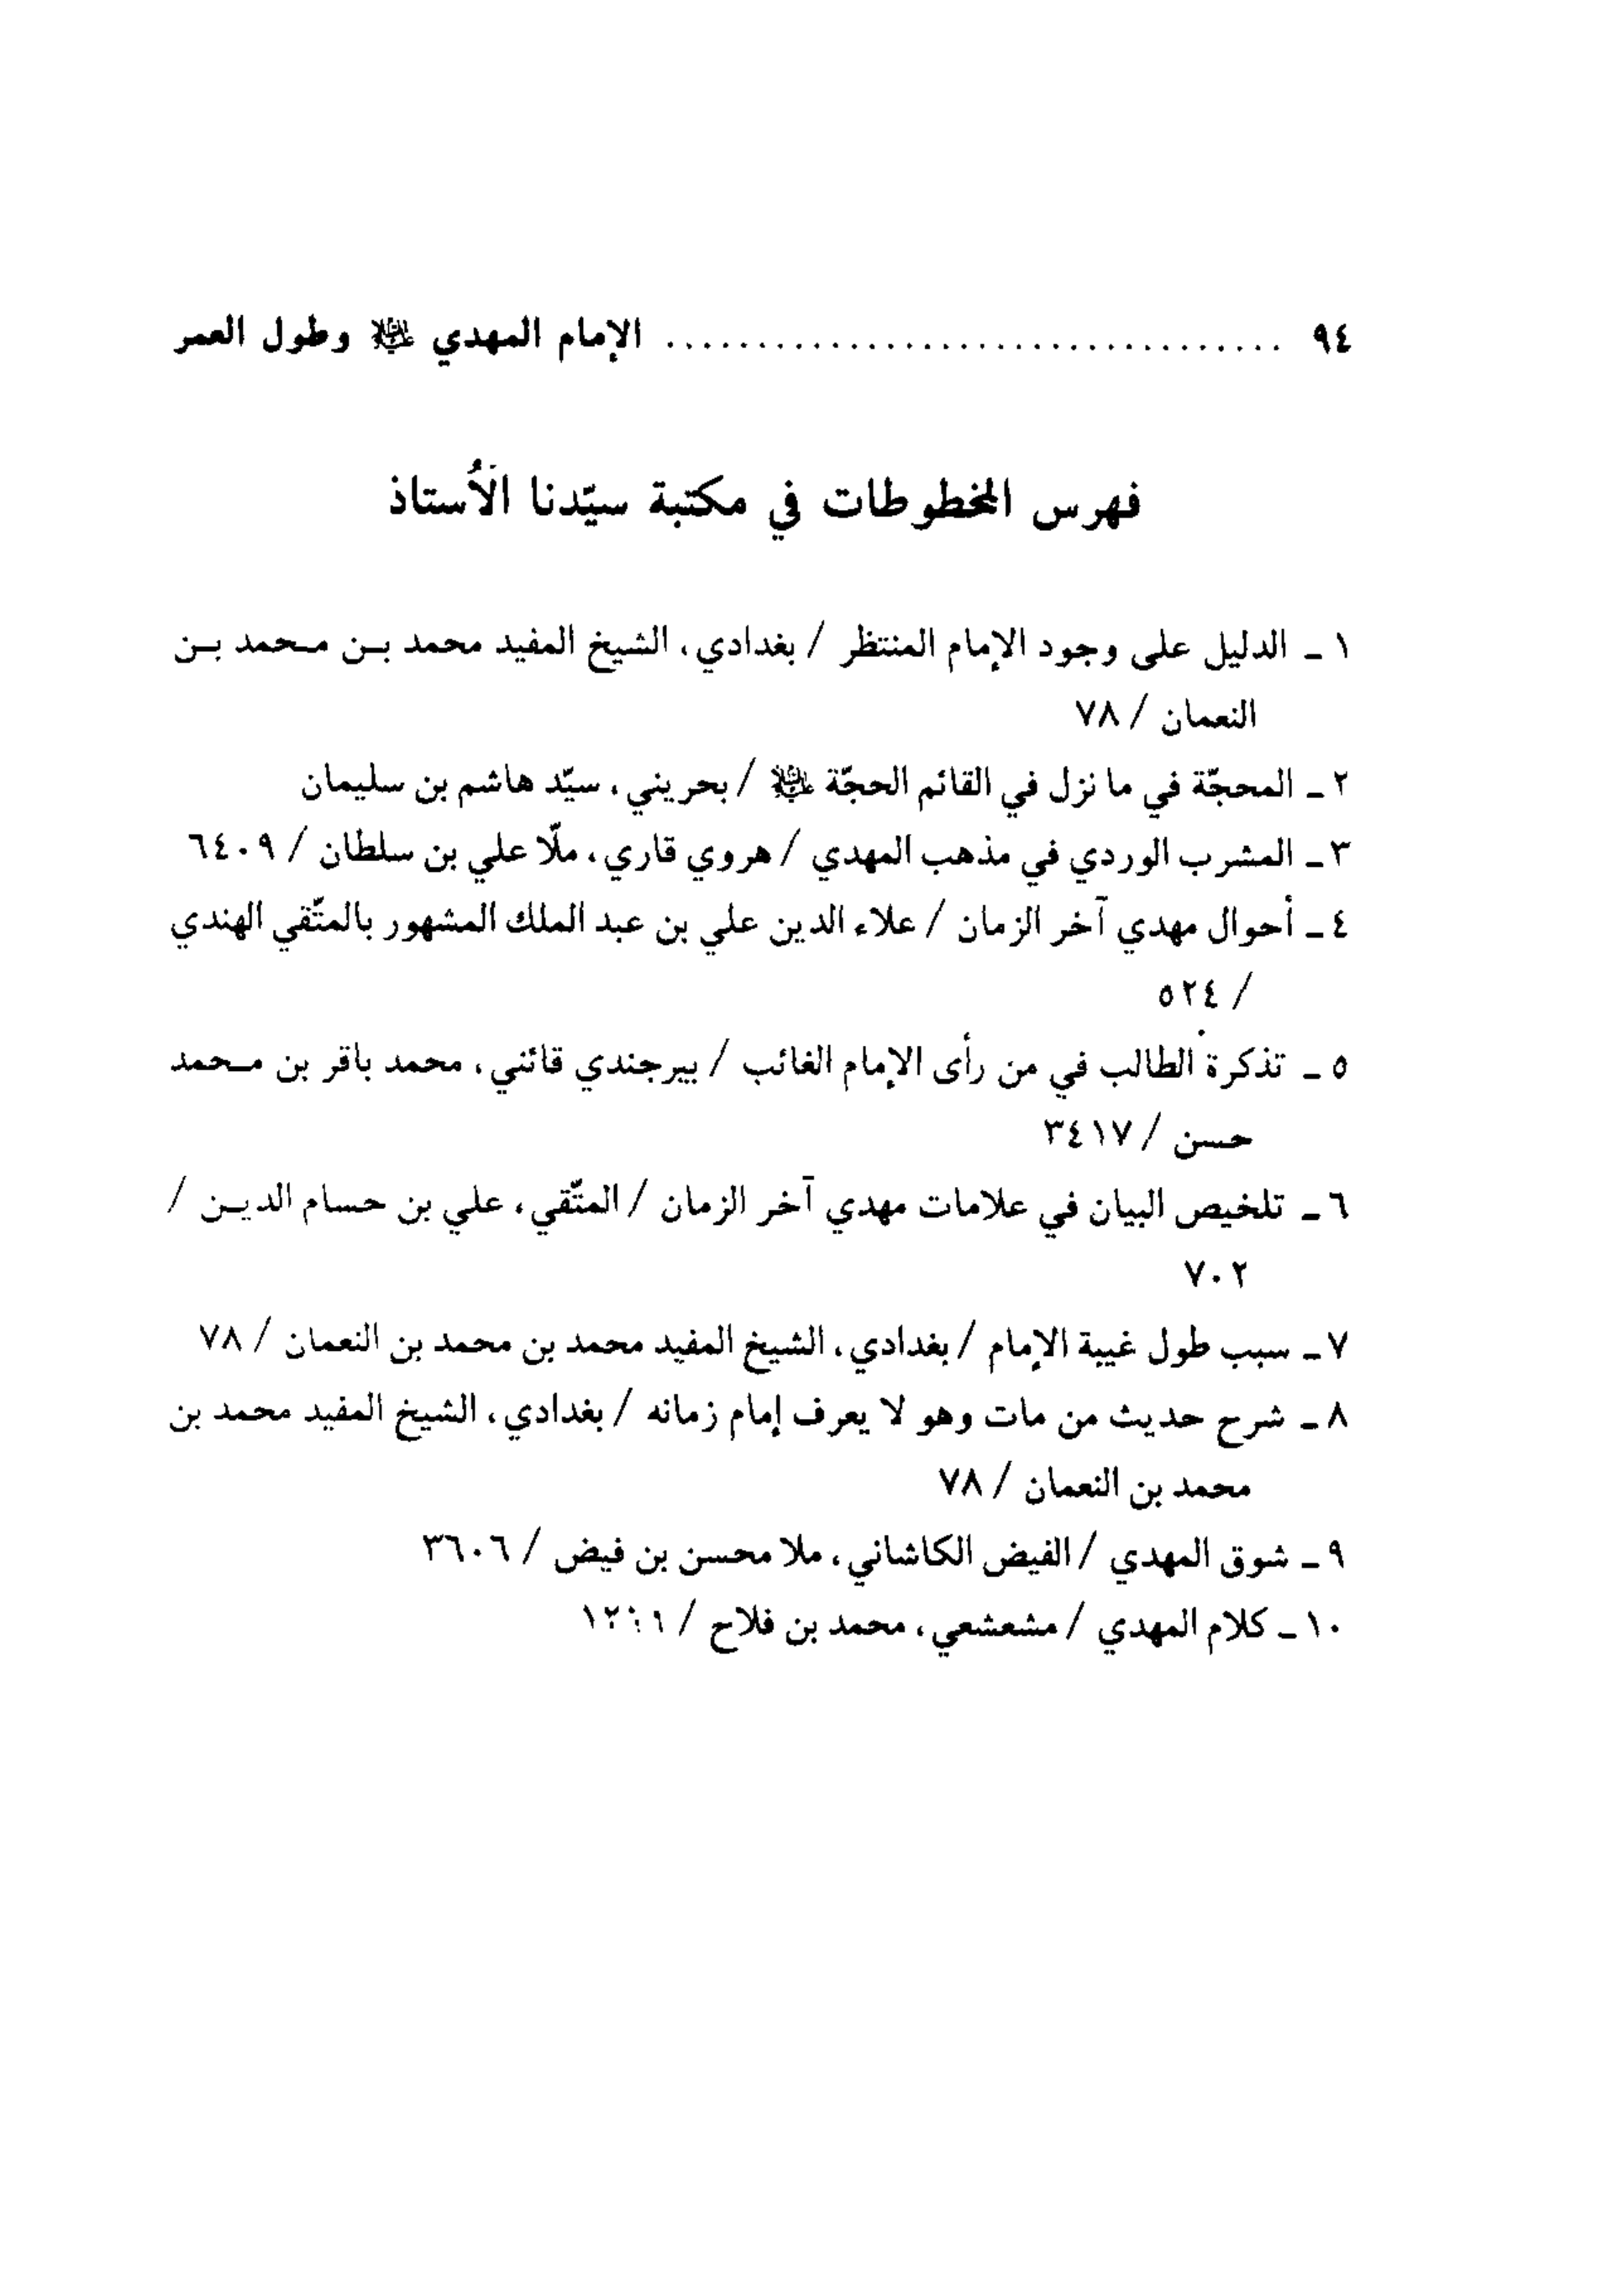 ٩٤ .................................. الإمام المهدي عليه السلام وطول العمر
فهرس المخطوطات في مكتبة سيّدنا الأُستاذ
١ ـ الدليل على وجود الإمام المنتظر / بغدادي، الشيخ المفيد محمد بن محمد بن
النعمان / ٧٨
٢ ـ المحجّة في ما نزل في القائم الحجّة عليه السلام / بحريني، سيّد هاشم بن سليمان
٣ ـ المشرب الوردي في مذهب المهدي / هروي قاري، ملّا علي بن سلطان / ٦٤٠٩
٤ ـ أحوال مهدي آخر الزمان / علاء الدين علي بن عبد الملك المشهور بالمتّقي الهندي
/ ٥٢٤
٥ ـ تذكرة الطالب في من رأى الإمام الغائب / بيرجندي قائني، محمد باقر بن محمد
حسن / ٣٤١٧
٦ ـ تلخيص البيان في علامات مهدي آخر الزمان / المتّقي، علي بن حسام الدين /
٧٠٢
٧ ـ سبب طول غيبة الإمام / بغدادي، الشيخ المفيد محمد بن محمد بن النعمان / ٧٨
٨ ـ شرح حديث من مات وهو لا يعرف إمام زمانه / بغدادي، الشيخ المفيد محمد بن
محمد بن النعمان / ٧٨
٩ ـ شوق المهدي / الفيض الكاشاني، ملا محسن بن فيض / ٣٦٠٦
١٠ ـ كلام المهدي / مشعشعي، محمد بن فلاح /